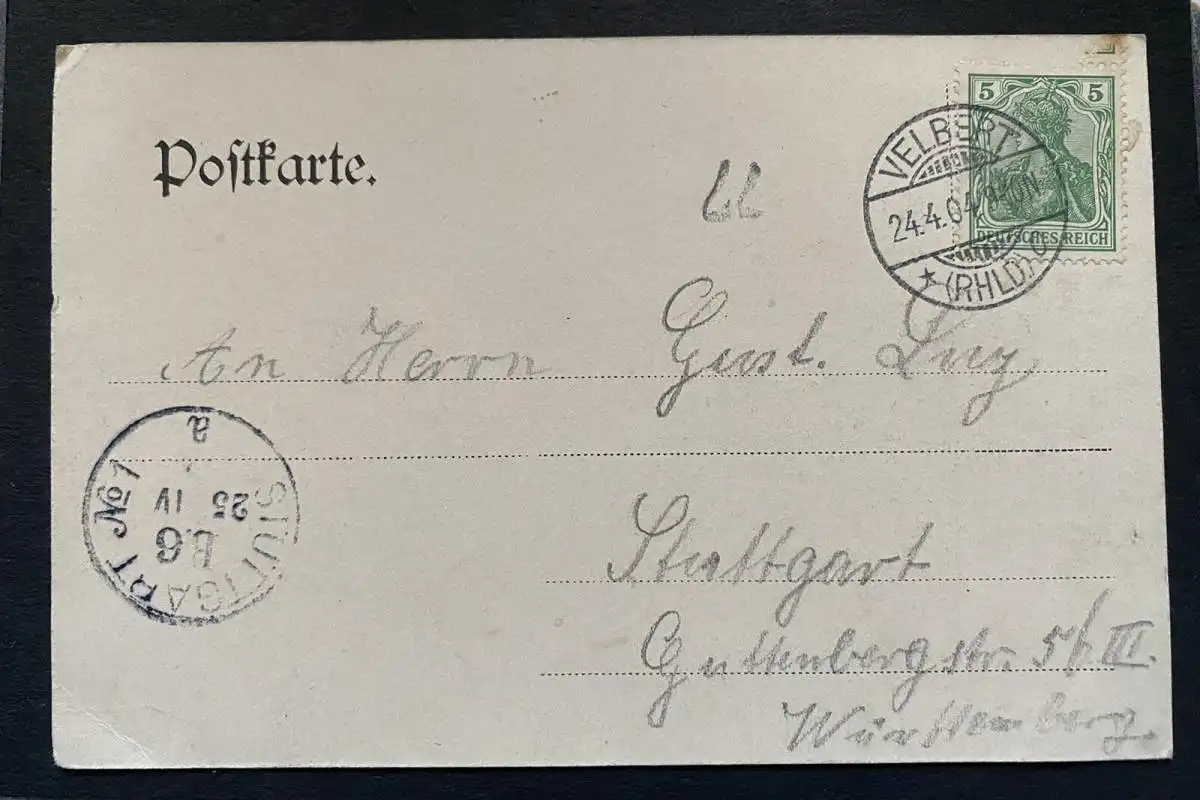 Postkarte.
5 5
DEUTSCHES REICH
VELBERT
24.4.04
* (RHLD)
An Herrn Gust. Luz
Stuttgart
Guttenbergstr. III.
Württemberg.
STUTTGART No 1
a
25 IV